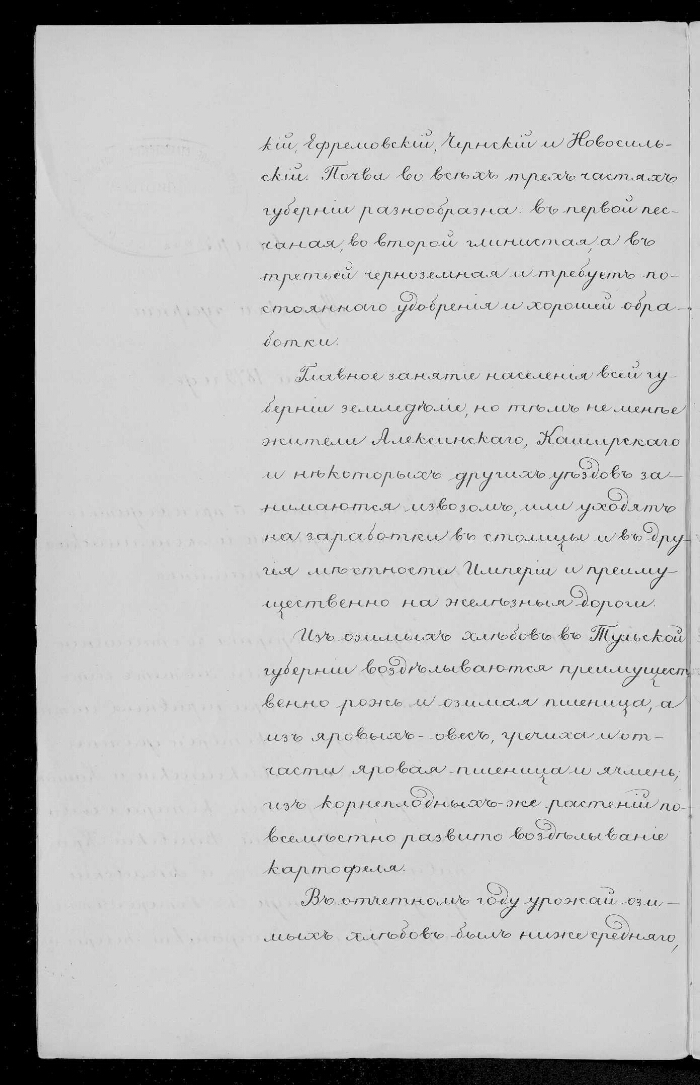 кій, Ефремовскій, Чернскій и Новосиль-
скій. Почва во всѣхъ трехъ частяхъ
губерніи разнообразна - въ первой пес-
чаная, во второй глинистая, а въ
третьей черноземная и требуетъ по-
стояннаго удобренія и хорошей обра-
ботки.
Главное занятіе населенія всей гу-
берніи земледѣліе, но тѣмъ не менѣе
жители Алексинскаго, Каширскаго
и нѣкоторыхъ другихъ уѣздовъ за-
нимаются извозомъ, или уходятъ
на заработки въ столицы и въ дру-
гія мѣстности Имперіи и преиму-
щественно на желѣзныя дороги.
Изъ озимыхъ хлѣбовъ въ Тульской
губерніи воздѣлываются преимущест
венно рожь и озимая пшеница, а
изъ яровыхъ - овесъ, гречиха и от-
части яровая пшеница и ячмень;
изъ корнеплодныхъ-же растеній по-
всемѣстно развито воздѣлываніе
картофеля.
Въ отчетномъ году урожай ози-
мыхъ хлѣбовъ былъ ниже средняго,